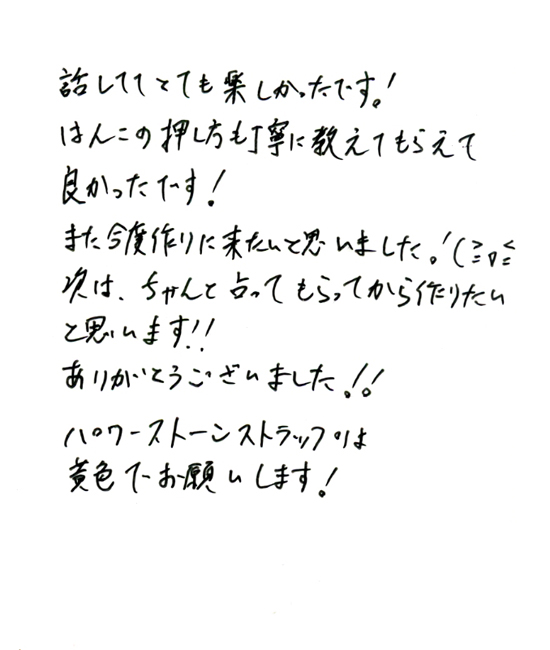 話しててとても楽しかったです!
はんこの押し方も丁寧に教えてもらえて
良かったです!
また今度作りに来たいと思いました!(≧▽≦
次は、ちゃんと占ってもらってから作りたい
と思います!!
ありがとうございました!!
パワーストーンストラップは
黄色でお願いします!